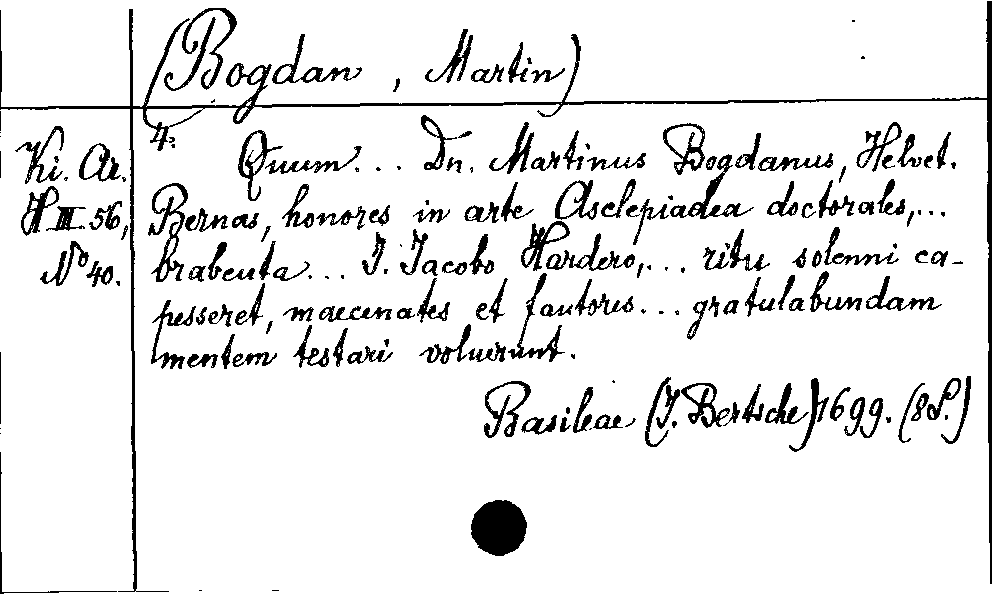 (Bogdan, Martin)
Ki. Ar.
H III 56,
No 40.
4:
Quum... Dn. Martinus Bogdanus, Helvet.
Bernas, honores in arte Asclepiadea doctorales,...
brabeuta... J. Jacobo Hardero,... ritu solenni ca-
pesseret, maecenates et fautores... gratulabundam
mentem testari voluerunt.
Basileae (J. Bertsche) 1699. (8 S.)